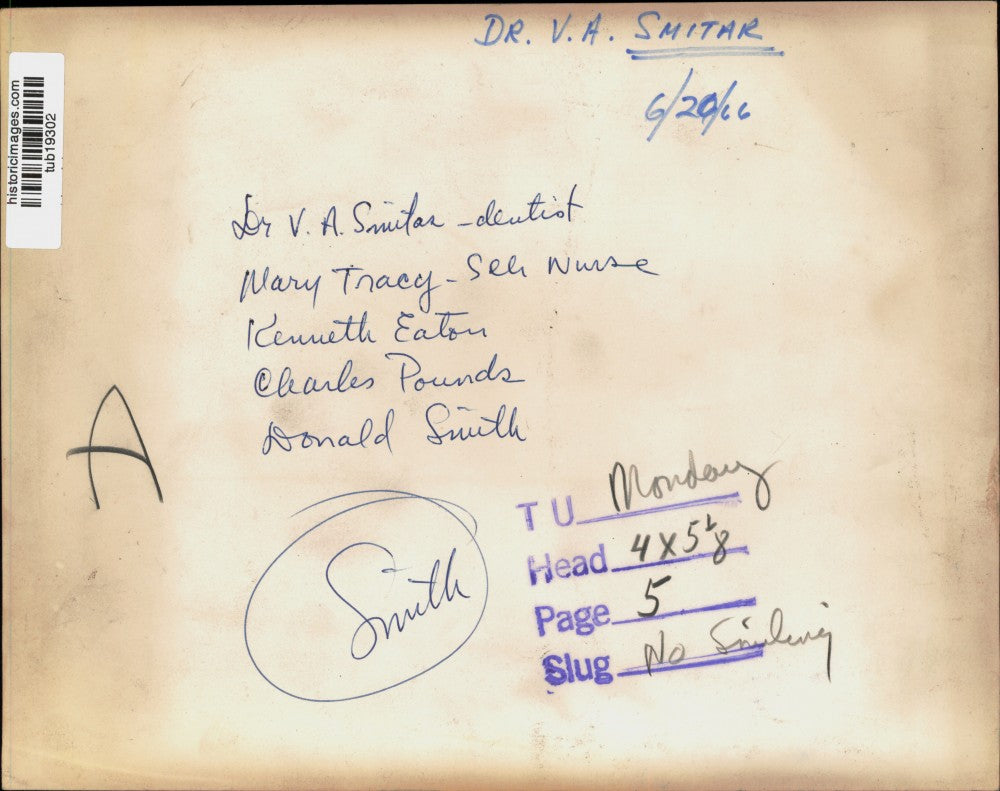 DR. V. A. SMITAR
6/20/66
historicimages.com
tub19302
Dr V. A. Smitar - dentist
Mary Tracy - Sch Nurse
Kenneth Eaton
Charles Pounds
Donald Smith
A
Smith
T U Monday
Head 4 X 5 1/8
Page 5
Slug No Smiling